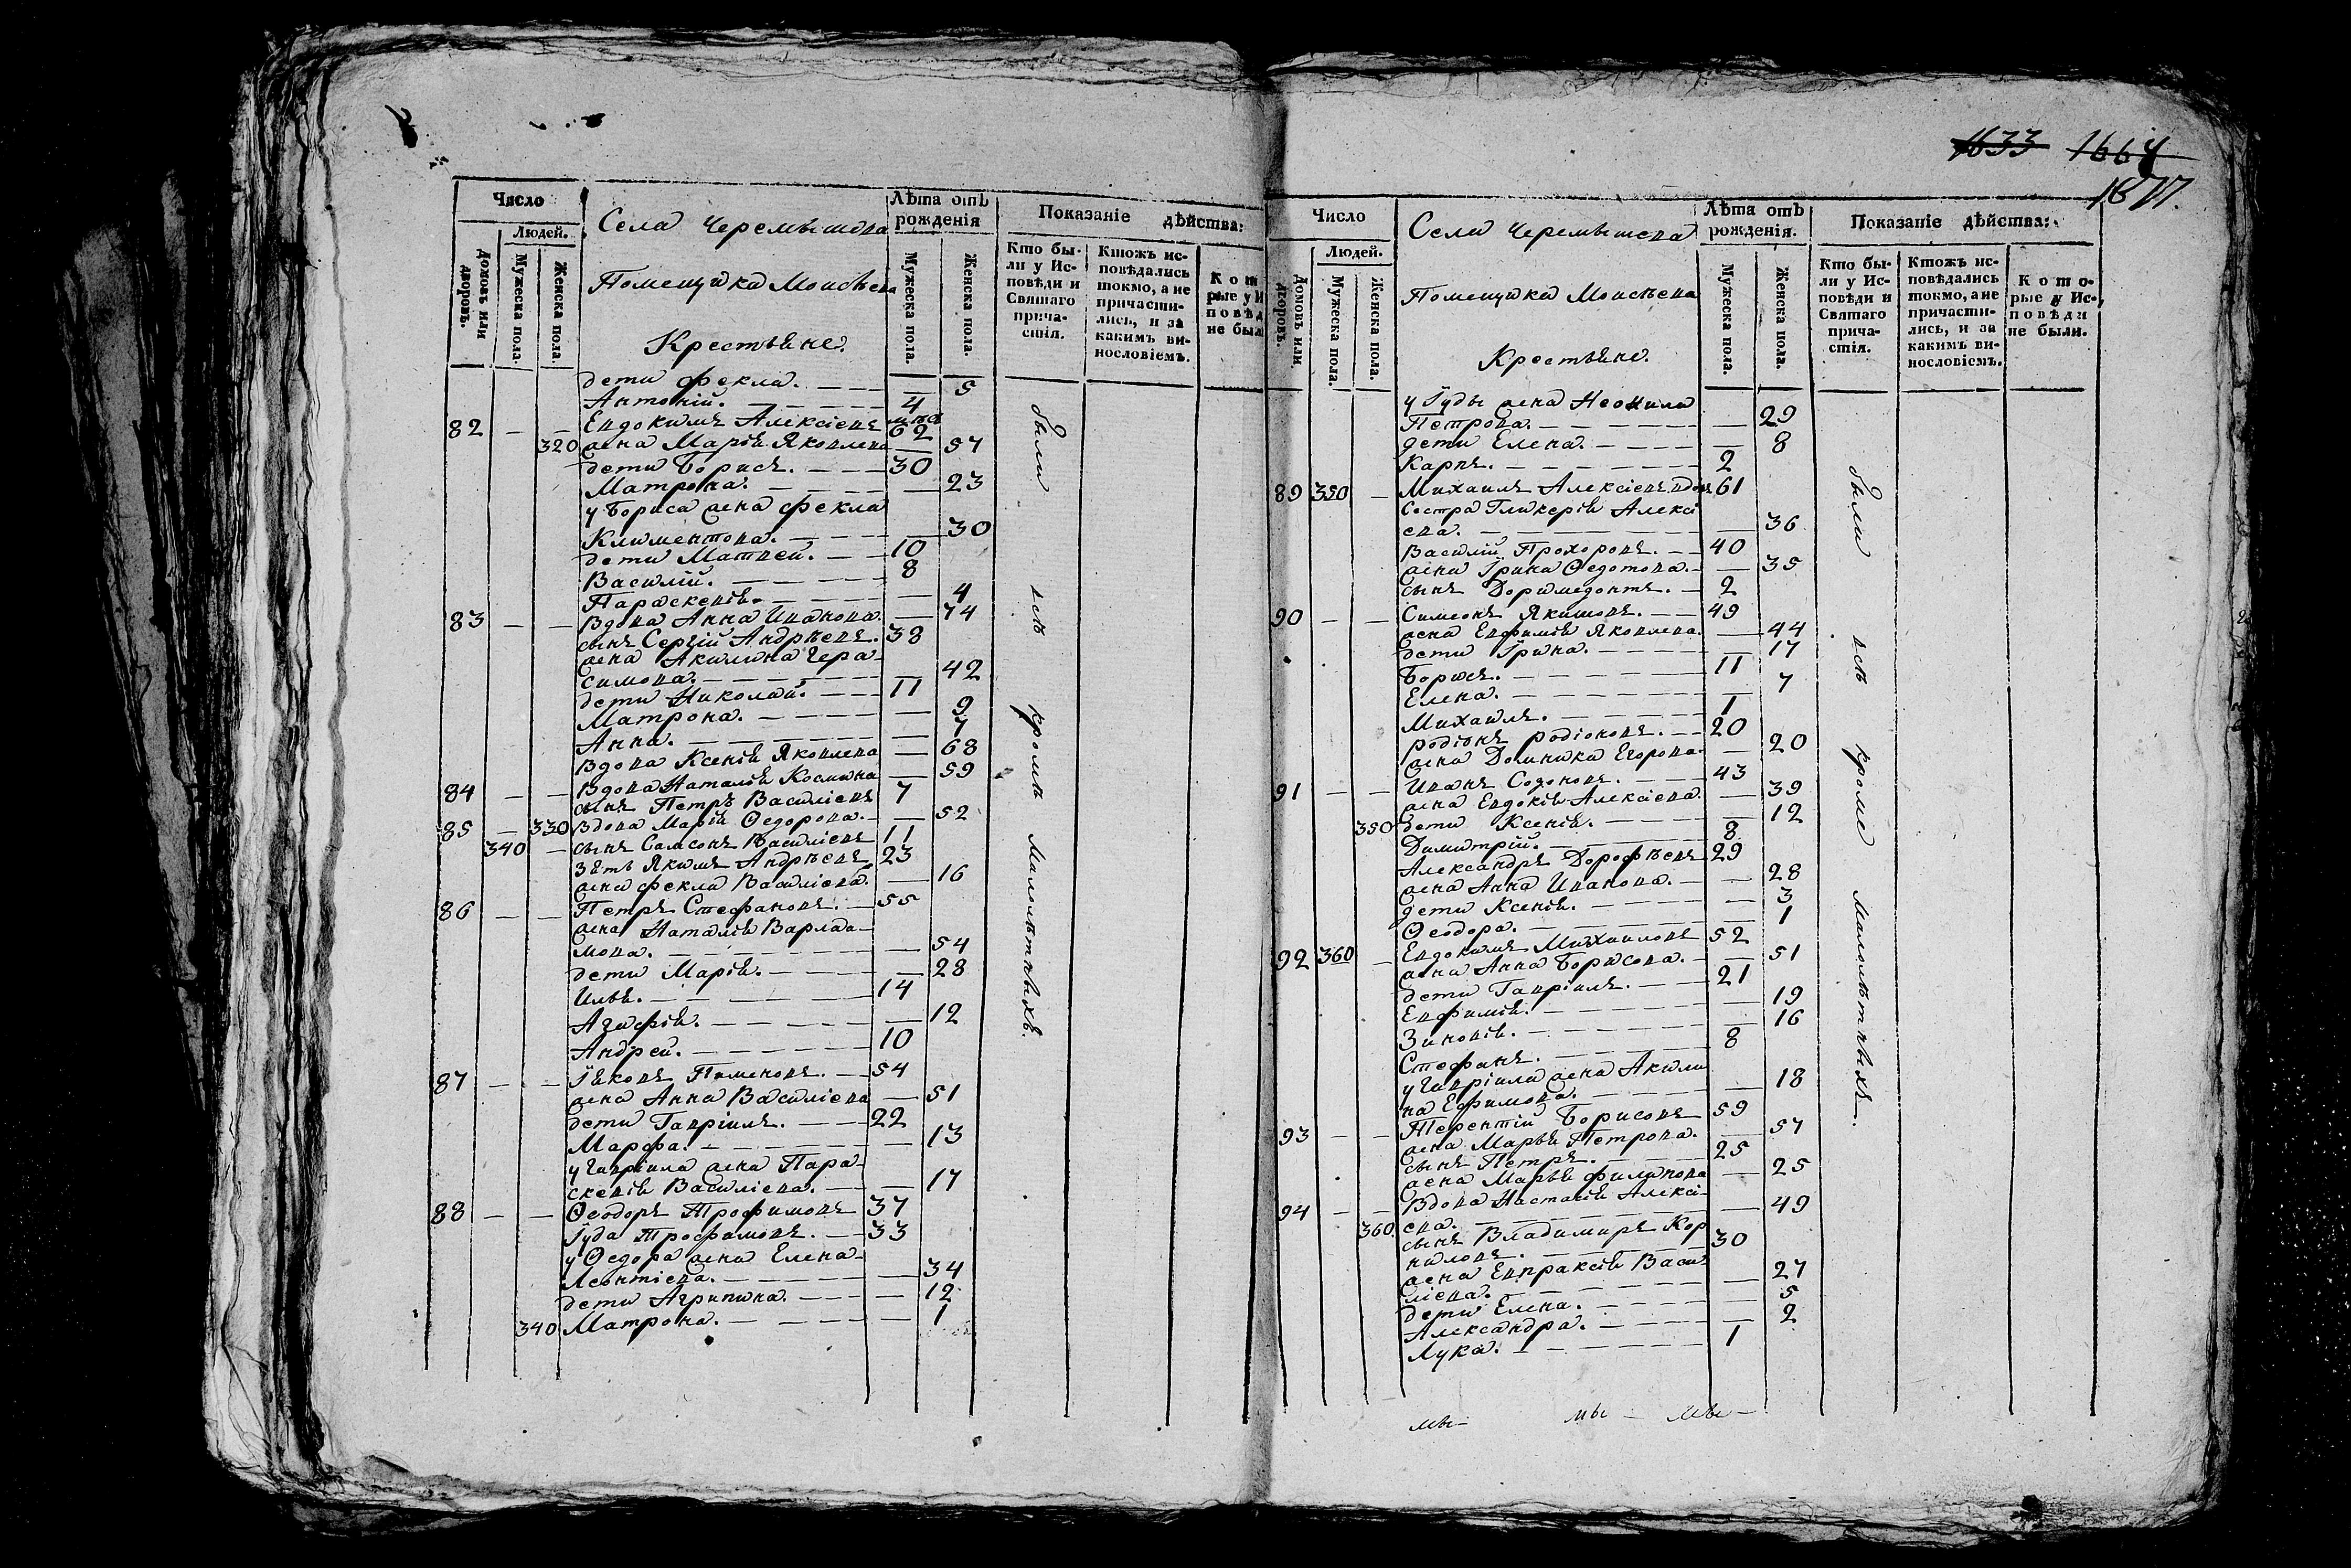 1633 1664
1677.
Число
Людей.
Домовъ или дворовъ.
Мужеска пола.
Женска пола.
Села Черемышева
Помещика Моисѣева
Крестьяне.
Лѣта отъ рожденія
Мужеска пола.
Женска пола.
Показаніе дѣйства:
Кто бы-
ли у Ис-
повѣди и
Святаго
прича-
стія.
Ктожъ ис-
повѣдались
токмо, а не
причасти-
лись, и за
какимъ ви-
нословіемъ.
Кот
рые у И
повѣд
не был
дети Фекла. — — 5
Антоній. — — 4
82 — — Евдокимъ Алексіевъ 62
320 жена Марія Яковлева — 57
дети Борисъ. — — 30
Матрона. — — 23
у Бориса жена Фекла
Климентова. — — 30
дети Матвей. — — 10
Василій. — — 8
Параскевія. — — 4
83 — — Вдова Анна Иванова. — 74
сынъ Сергій Андрѣевъ. 38
жена Акилина Гера-
симова. — — 42
дети Николай. — — 11
Матрона. — — 9
Анна. — — 7
Вдова Ксенія Яковлева — 68
84 — — Вдова Наталія Космина — 59
сынъ Петръ Василіевъ 7
85 — 330 Вдова Марія Ѳедорова. — 52
340 — сынъ Самсонъ Василіевъ 11
зять Якимъ Андрѣевъ 23
жена Фекла Василіева. — 16
86 — — Петръ Стефановъ. — 55
жена Наталія Варлаа-
мова. — — 54
дети Марія. — — 28
Илья. — — 14
Агафія. — — 12
Андрей. — — 10
87 — — Іяковъ Пименовъ. — 54
жена Анна Василіева — 51
дети Гавріилъ. — — 22
Марфа. — — 13
у Гавріила жена Пара-
скевія Василіева. — — 17
88 — — Ѳеодоръ Трофимовъ 37
Іуда Трофимовъ. — 33
у Ѳедора жена Елена
Леонтіева. — — 34
дети Агрипина. — — 12
340 Матрона. — — 1
были всѣ кромѣ малолѣтныхъ.
Число
Людей.
Домовъ или дворовъ.
Мужеска пола.
Женска пола.
Села Черемышева
Помещика Моисѣева
Крестьяне.
Лѣта отъ рожденія.
Мужеска пола.
Женска пола.
Показаніе дѣйства:
Кто бы-
ли у Ис-
повѣди и
Святаго
прича-
стія.
Ктожъ ис-
повѣдались
токмо, а не
причасти-
лись, и за
какимъ ви-
нословіемъ.
Кото-
рые у Ис-
повѣди
не были.
у Іуды жена Неонила
Петрова. — — 29
дети Елена. — — 8
Карпъ. — — 2
89 350 — Михаилъ Алексіевъ вдов 61
сестра Гликерія Алексі
ева. — — 36
Василій Прохоровъ. — 40
жена Ірина Ѳедотова. — 35
сынъ Доримедонтъ. — 2
90 — — Симеонъ Якимовъ. — 49
жена Евфимія Яковлева. — 44
дети Ірина. — — 17
Борисъ. — — 11
Елена. — — 7
Михаилъ. — — 1
Родіонъ Родіоновъ. — 20
жена Домника Егорова. — 20
91 — — Иванъ Созоновъ. — 43
жена Евдокія Алексіева. — 39
350 дети Ксенія. — — 12
Димитрій. — — 8
Александръ Дорофѣевъ 29
жена Анна Иванова. — 28
дети Ксенія. — — 3
Ѳеодора. — — 1
92 360 — Евдокимъ Михаиловъ 52
жена Анна Борисова. — 51
дети Гавріилъ. — — 21
Евфимія. — — 19
Зиновія. — — 16
Стефанъ. — — 8
у Гавріила жена Акили
на Ефимова. — — 18
93 — — Терентій Борисовъ 59
жена Марья Петрова. — 57
сынъ Петръ. — — 25
жена Марья Филипова — 25
94 — — Вдова Настасія Алексі-
ева. — — 49
360. сынъ Владимиръ Кор
ниловъ. — — 30
жена Евпраксія Васи
ліева. — — 27
дети Елена. — — 5
Александра. — — 2
Лука. — — 1
были всѣ кромѣ малолѣтныхъ.
мы— мы — мы—